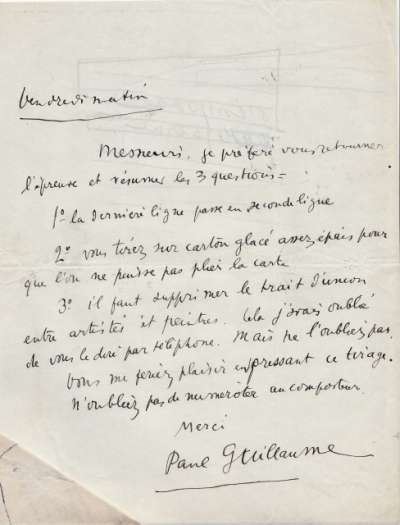 Vendredi matin
Messieurs, je préfère vous retourner
l'épreuve et résumer les 3 questions =
1º la dernière ligne passe en seconde ligne
2º vous tirez sur carton glacé assez épais pour
que l'on ne puisse pas plier la carte
3º il faut supprimer le trait d'union
entre artistes et peintres. Cela j'avais oublié
de vous le dire par téléphone. Mais ne l'oubliez pas.
Vous me feriez plaisir en pressant ce tirage.
N'oubliez pas de numeroter au composteur.
Merci
Paul Guillaume